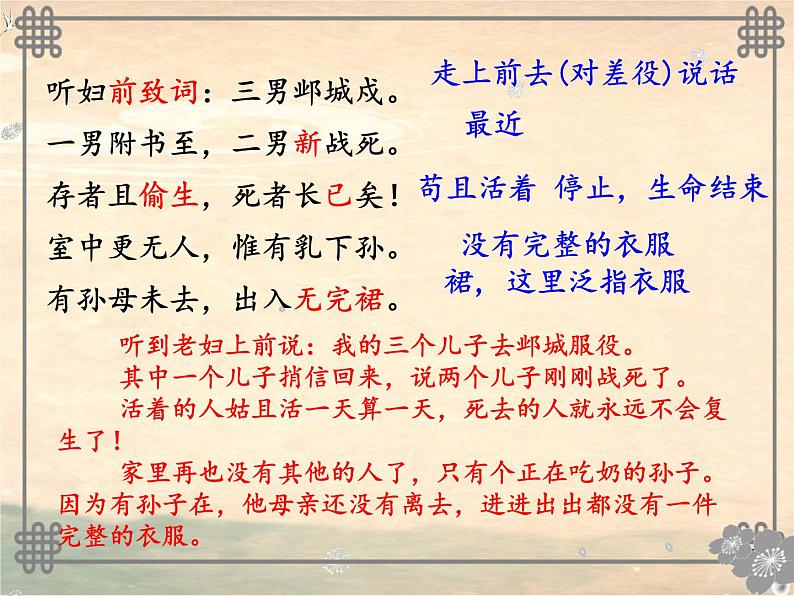 听妇前致词：三男邺城戍。
走上前去(对差役)说话
一男附书至，二男新战死。
最近
存者且偷生，死者长已矣！
苟且活着 停止，生命结束
室中更无人，惟有乳下孙。
没有完整的衣服
裙，这里泛指衣服
有孙母未去，出入无完裙。
听到老妇上前说：我的三个儿子去邺城服役。
其中一个儿子捎信回来，说两个儿子刚刚战死了。
活着的人姑且活一天算一天，死去的人就永远不会复
生了！
家里再也没有其他的人了，只有个正在吃奶的孙子。
因为有孙子在，他母亲还没有离去，进进出出都没有一件
完整的衣服。